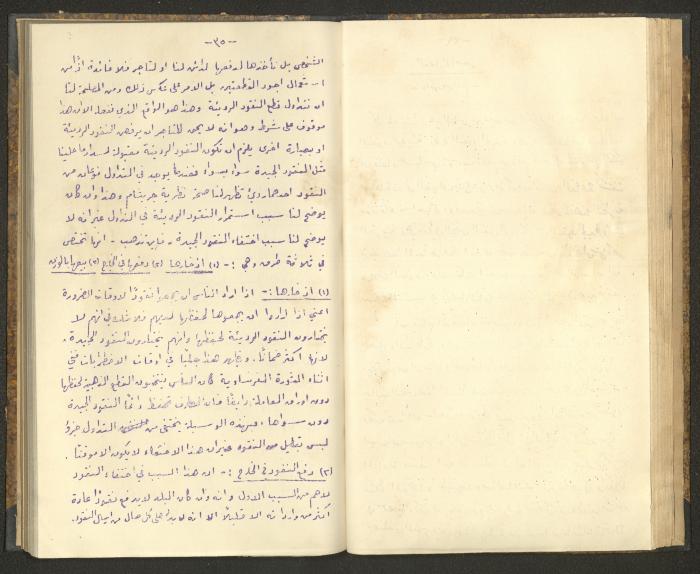 -٣٥-
الشخصى بل نأخذها لندفعها لدائن لنا او لتاجر فلا فائدة اذاً من
استعمال اجود القطعتين بل الامر على عكس ذلك ومن المصلحة لنا
ان نتداول قطع النقود الرديئة وهذا هو الواقع الذى فعلا الا ان هذا
موقوف على شرط وهو انه لا يمكن للتاجر ان يرفض النقود الرديئة
او بعبارة اخرى يلزم ان تكون النقود الرديئة مقبولة لسداد ما علينا
مثل النقود الجيدة سواء بسواء فعندما يوجد فى التداول نوعان من
النقود احدهما ردئ تظهر لنا صحة نظرية جريشام وهذا وان كان
يوضح لنا سبب استمرار النقود الرديئة فى التداول غير انه لا
يوضح لنا سبب اختفاء النقود الجيدة، فاين تذهب - انها تختفى
فى ثلاثة طرق وهى :- (١) ادخارها (٢) دفعها فى الخارج (٣) بيعها بالوزن
(١) ادخارها :- اذا اراد الناس ان يجمعوا نقوداً لاوقات الضرورة
اعنى اذا ارادوا ان يجمعوها لحفظها لديهم فلا شك فى انهم لا
يختارون النقود الرديئة لحفظها وانهم يختارون النقود الجيدة،
لانها اكثر ضماناً، ويظهر هذا جلياً فى اوقات الاضطرابات ففى
اثناء الثورة الفرنساوية كان الناس ينتخبون القطع الذهبية لحفظها
دون اوراق المعاملة وايضاً فان المصارف تحفظ دائماً النقود الجيدة
دون سواها، فبهذه الوسيلة يختفى من التداول جزء
ليس بقليل من النقود غير ان هذا الاختفاء لا يكون الا موقتاً.
(٢) دفع النقود فى الخارج :- ان هذا السبب فى اختفاء النقود
لاهم من السبب الاول وانه وان كان البلد لا يدفع نقوداً عادة
اكثر من وارداته الا قليلاً الا انه لا بد على كل حال من ارسال النقود.